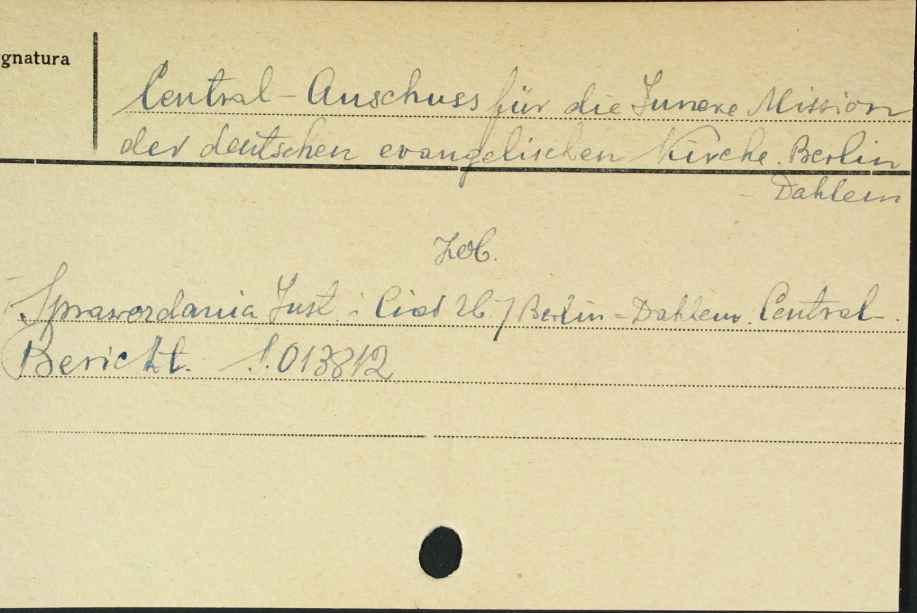 gnatura
Central-Auschuss für die Innere Mission
der deutschen evangelischen Kirche. Berlin
- Dahlem
Zob.
Sprawozdania Inst. i Ciał Zb. / Berlin-Dahlem. Central-.
Bericht. S.013812